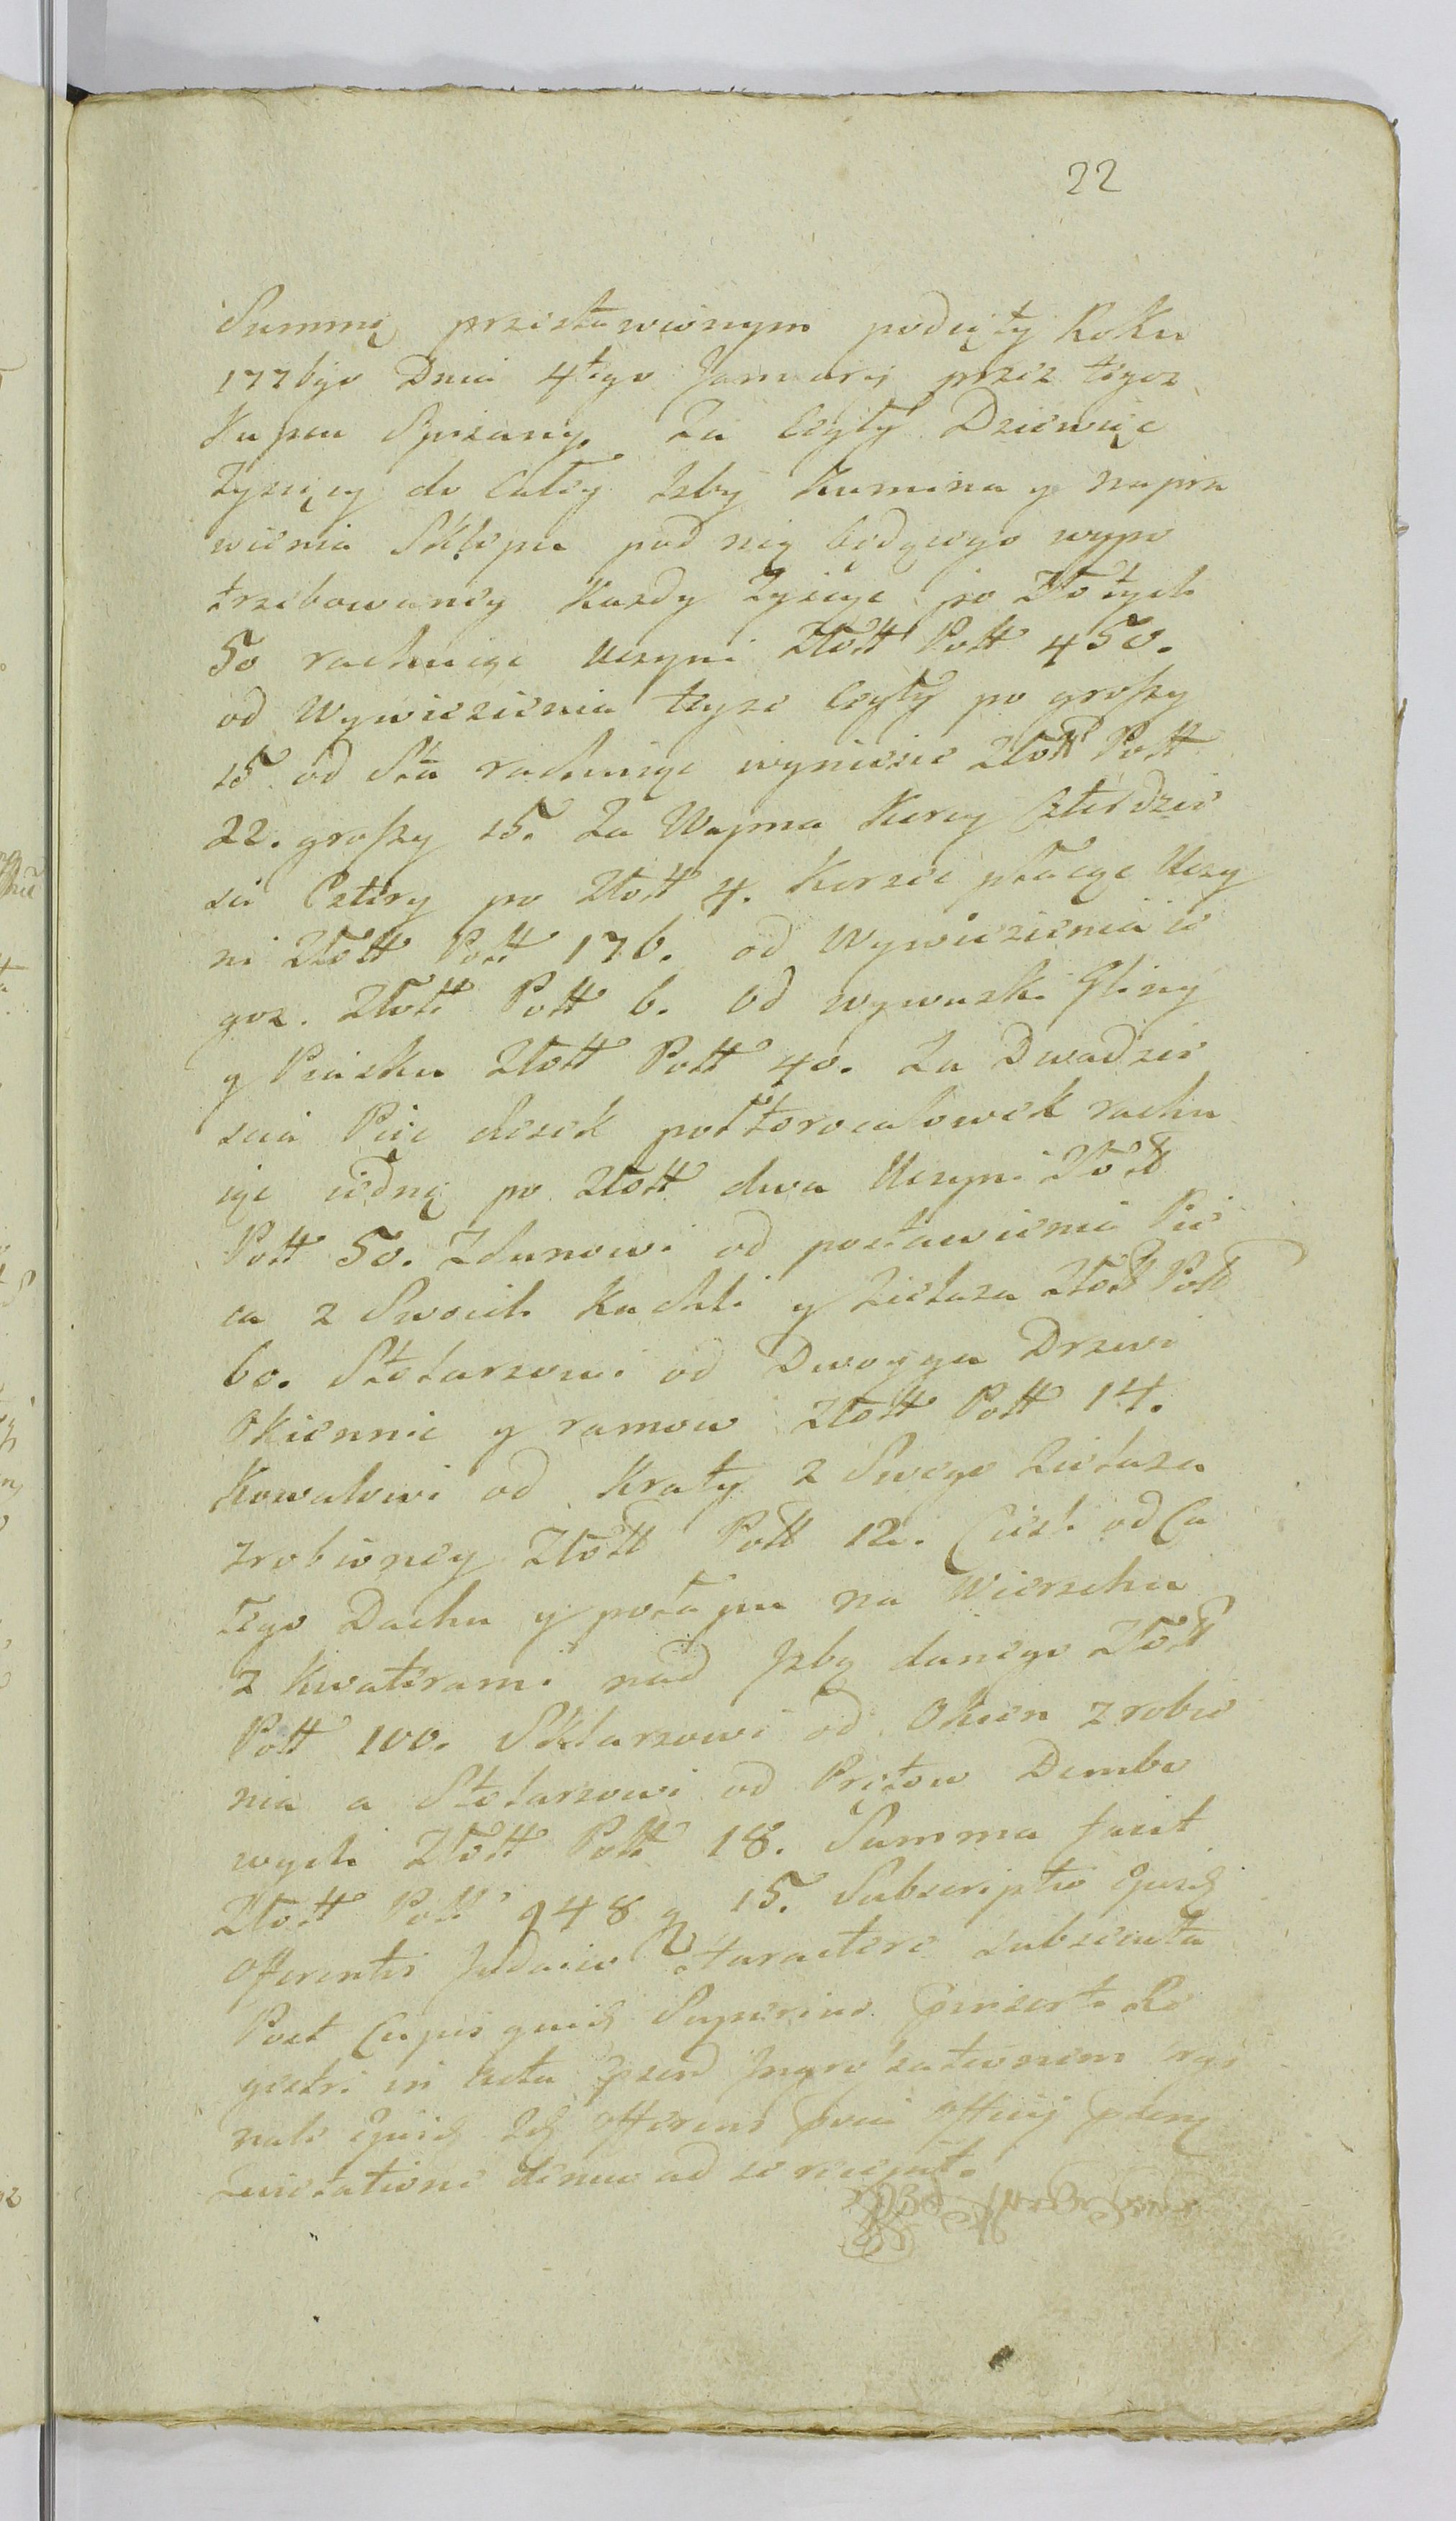 22
Summę przestawionym podięty Roku
1776go Dnia 4tego Januarij przez tegoz
Kupca Spisany. Za Cegły Dziewięc
Tysięcy do Całey Izby Kumina y napra
wienia Sklepu pod nią będącego wypo
trzebowaney Kazdy Tysiąc po Złotych
50 rachuiąc Uczyni Złott Poll 450.
od Wywiezienia teyze Cegły po groszy
15 od Sta rachuiąc wyniesie Złott Poll
22. groszy 15. Za Wapna Korcy Szterdzie
sci Cztery po Złott 4. Korzec płacąc Uczy
ni Złott Poll 176. od Wywiezienia te
goz. Złott Poll 6. Od wywuzki Gliny
y Piasku Złott Poll 40. Za Dwadzie
scia Pięc desek połtorocalowek rachu
iąc iedną po Złott dwa Uczyni Złott
Poll 50. Zdunowi od postawienia Pie
ca z Swoich Kachli y Zielaza Złott Poll
60. Stolarzowi od Dwoyga Drzwi
Okiennic y ramow Złott Poll 14.
Kowalowi od Kraty z Swego Zielaza
zrobioney Złott Poll 12. Ciesli od Ca
łego Dachu y pułapu na Wierzchu
z Kwaterami nad Izbą danego Złott
Poll 100. Sklarzowi od Okien zrobie
nia a Stolarzowi od Prętow Dembo
wych Złott Poll 18. Summa facit
Złott Poll 948 g 15. Subscriptio ejusd
Offerentis Judaico Charactere subsecuta
Post Cujus quid Superius Re
gestri in Acta Ingrossationem origi
nale ejusd Id Offerens Officij
quietatione denuo ad se recepit.